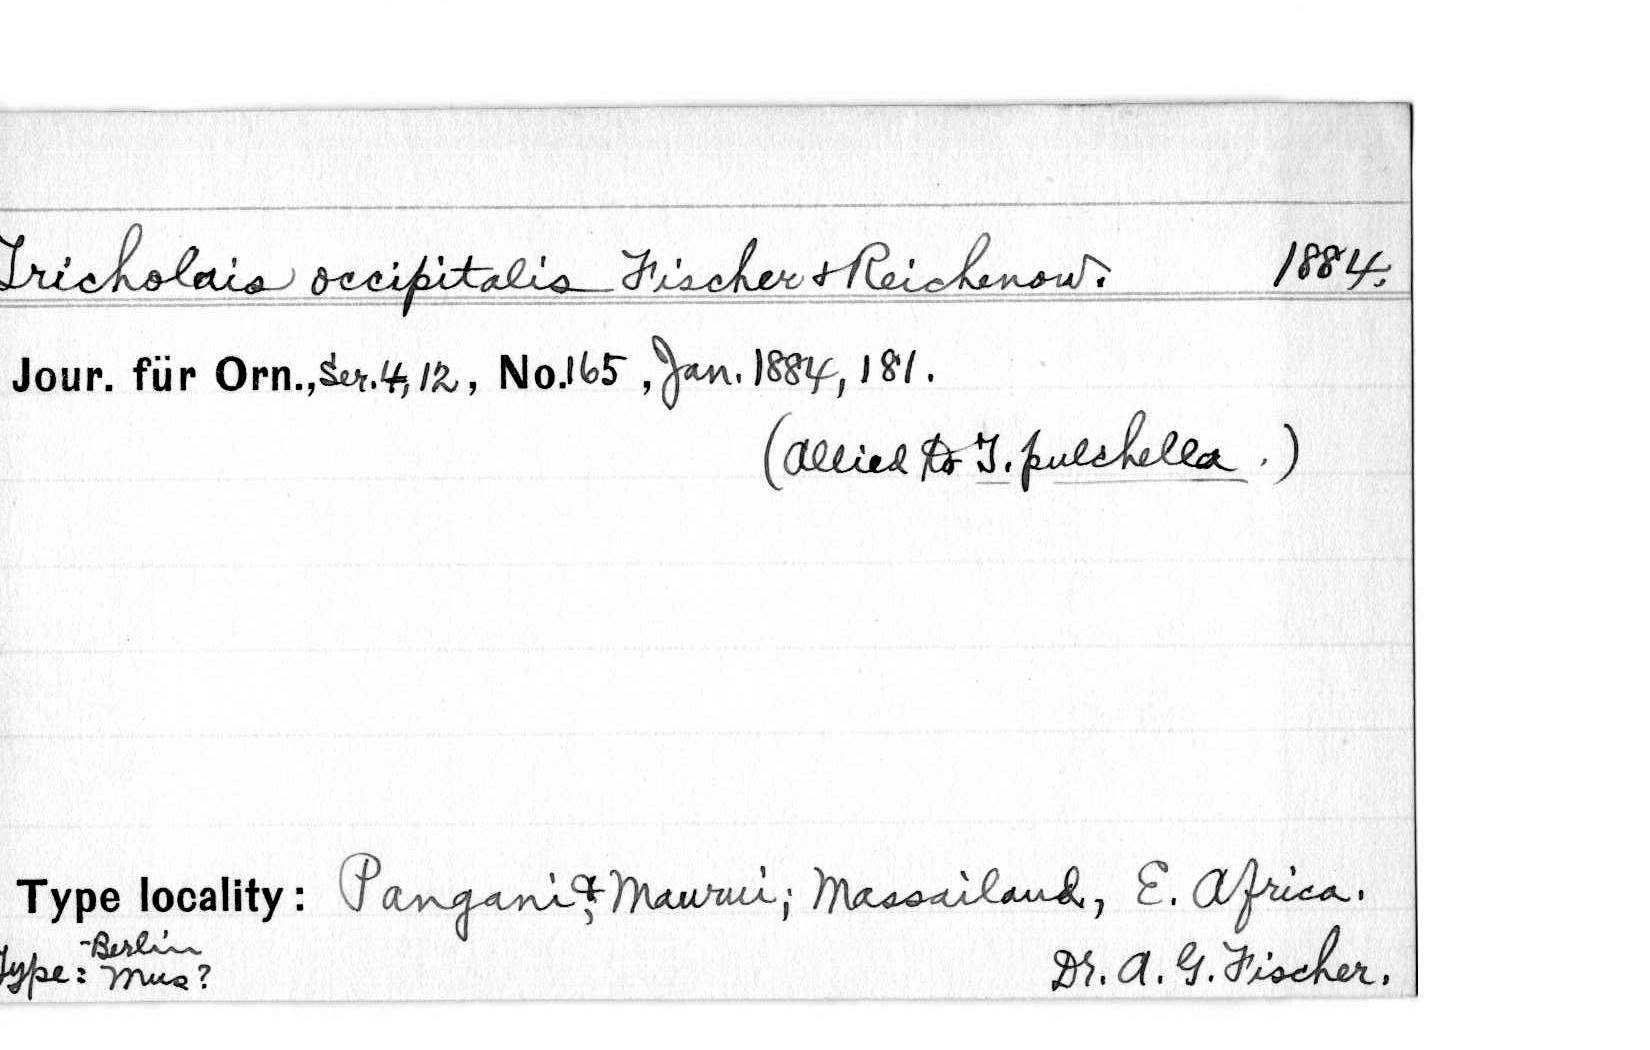 Tricholais occipitalis Fischer & Reichenow. 1884.
Jour. für Orn., Ser. 4, 12, No. 165, Jan. 1884, 181.
(Allied to T. pulchella.)
Type locality: Pangani & Maurui; Massailand, E. Africa.
Type: Berlin Mus? Dr. A. G. Fischer.